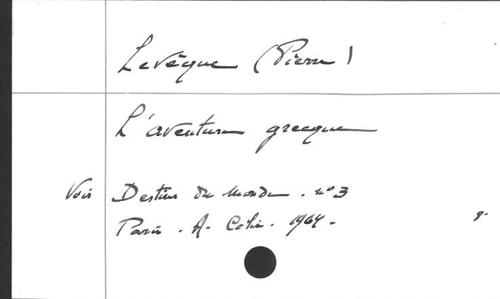 Levêque (Pierre)
L'aventure grecque
Voir Destins du monde. n° 3
Paris. A. Colin. 1964.
8°